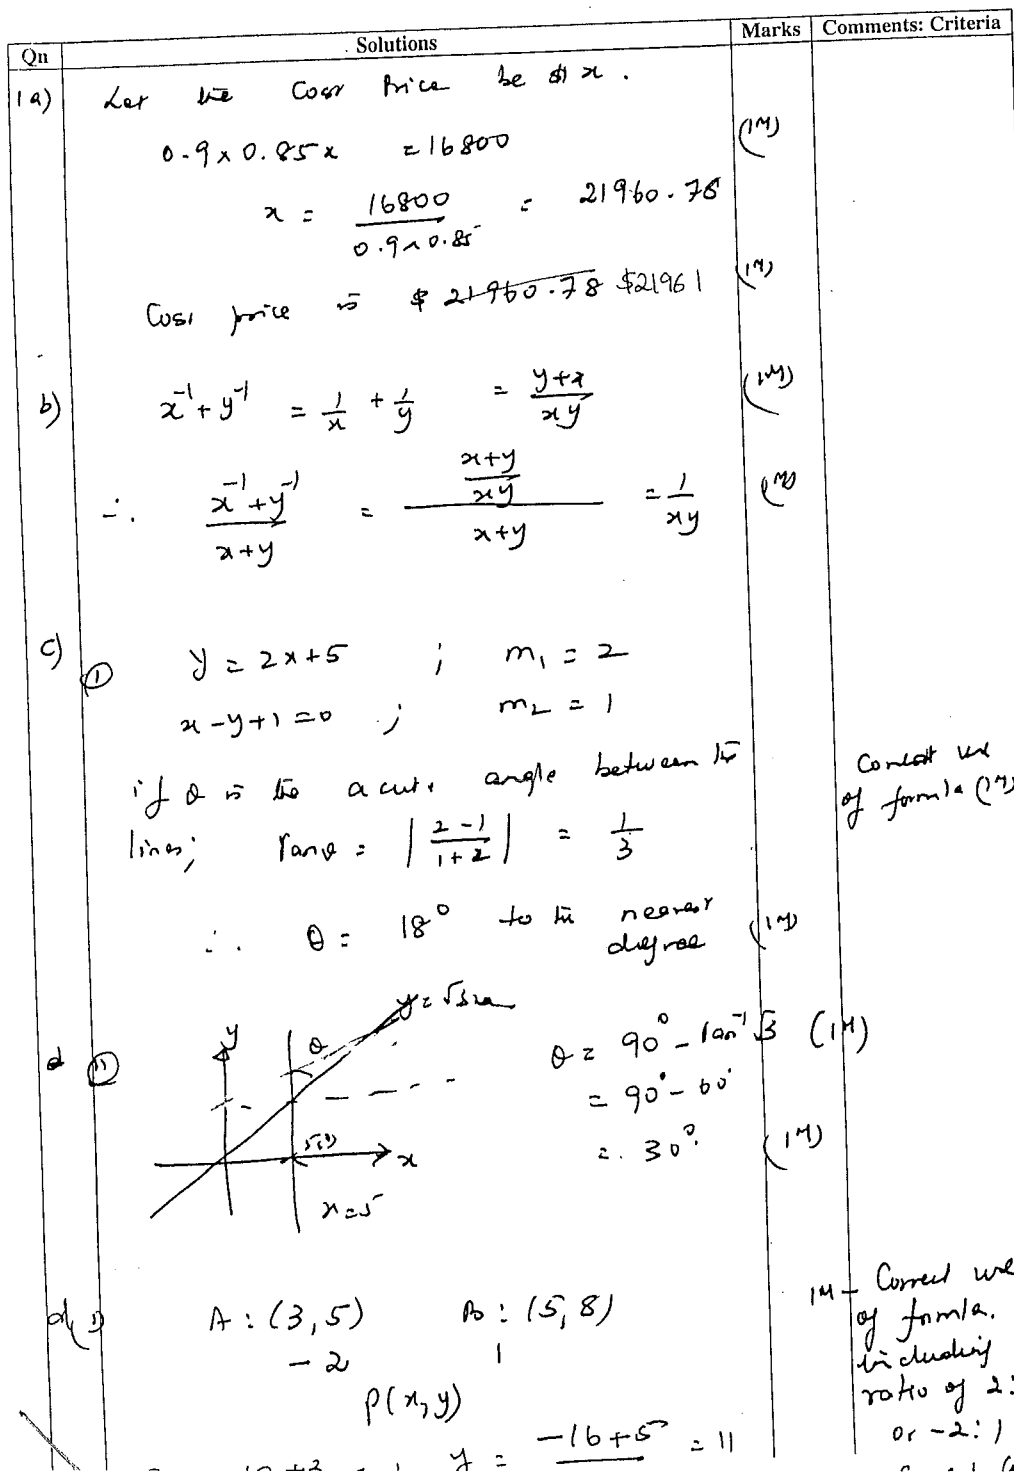 Qn Solutions Marks Comments: Criteria
1a) Let the Cost Price be $x.
0.9 x 0.85x = 16800 (1M)
x = 16800 / 0.9 x 0.85 = 21960.78
Cost price is $ 21960.78 $21961 (1M)
b) x⁻¹ + y⁻¹ = 1/x + 1/y = y+x / xy (1M)
∴ x⁻¹ + y⁻¹ / x+y = x+y / xy / x+y = 1/xy (1M)
c) (i) y = 2x+5 ; m₁ = 2
x - y + 1 = 0 ; m₂ = 1
if θ is the acute angle between the
lines; Tanθ = | 2-1 / 1+2 | = 1/3
Correct use
of formula (1M)
∴ θ = 18° to the nearest
degree (1M)
d (ii) y = √3x
y
θ
θ = 90° - tan⁻¹√3 (1M)
= 90° - 60°
= 30° (1M)
x
x = 5
d, i) A : (3,5) B : (5,8)
-2 1
P(x, y)
y = -16+5 = 11
1M - Correct use
of formula.
including
ratio of 2:
or -2:1